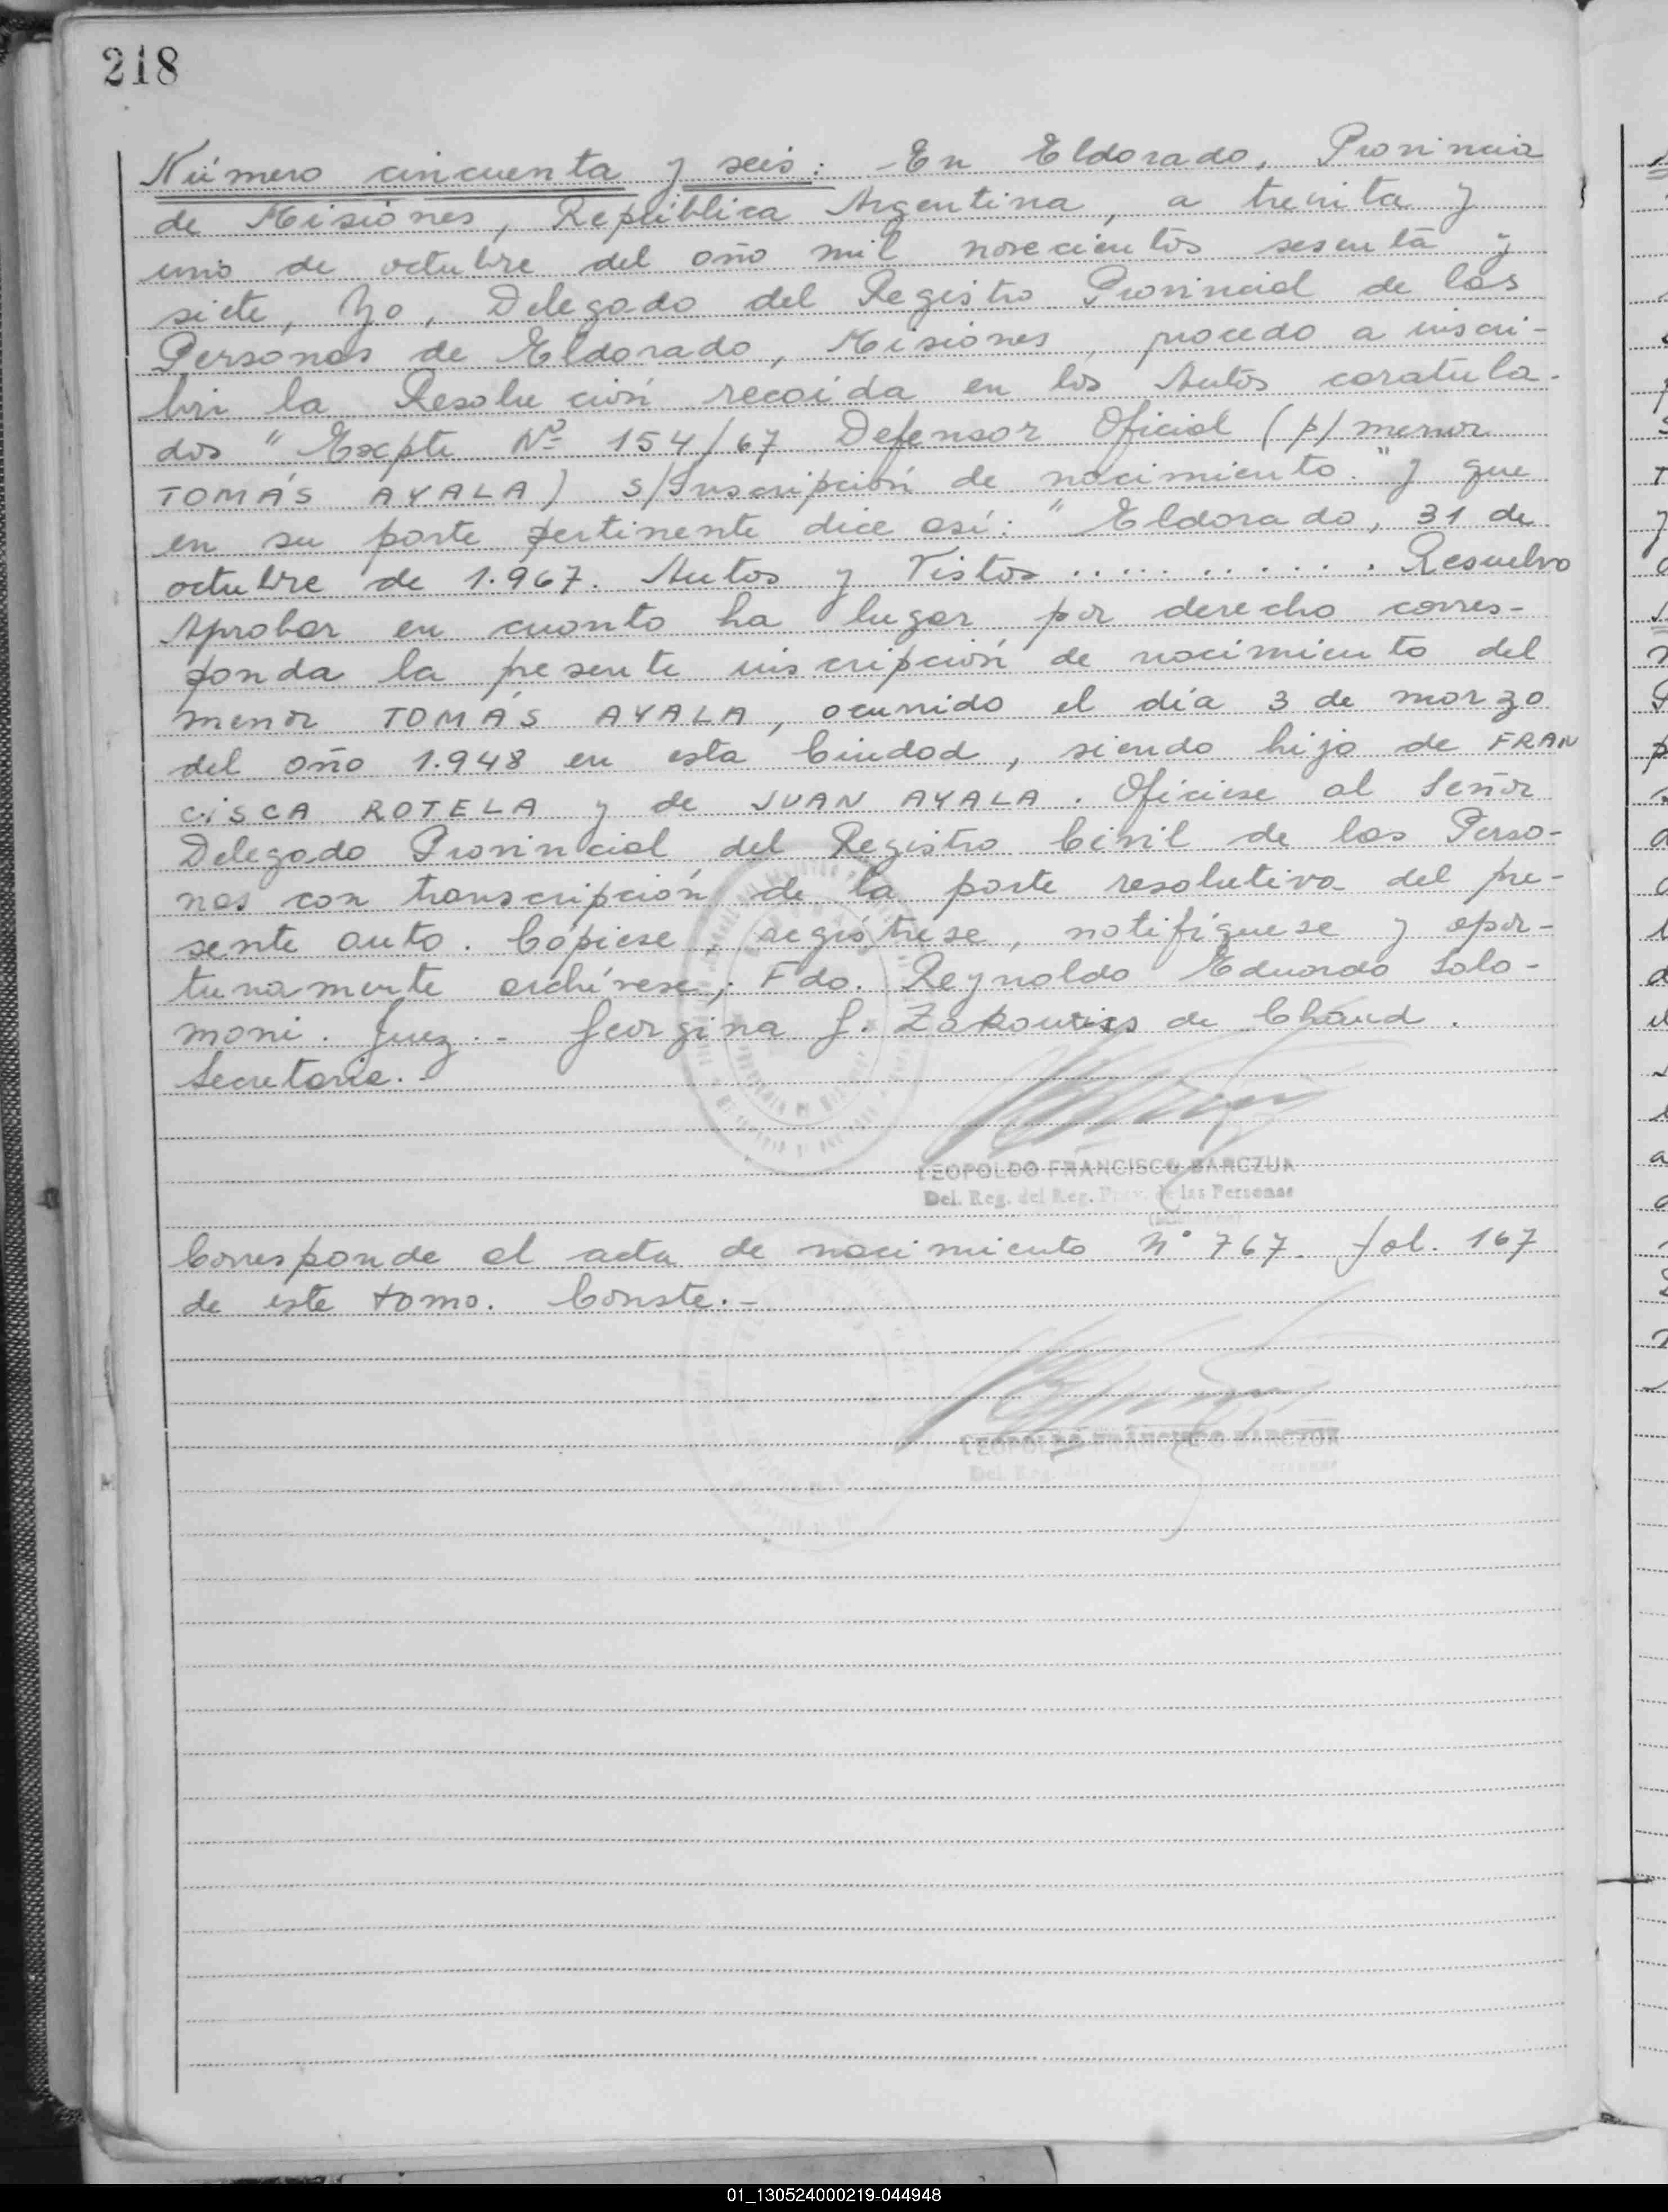 218
Número cincuenta y seis: - En Eldorado, Provincia
de Misiones, República Argentina, a treinta y
uno de octubre del año mil novecientos sesenta y
siete, Yo, Delegado del Registro Provincial de las
Personas de Eldorado, Misiones, procedo a inscri-
bir la Resolución recaída en los Autos caratula-
dos "Expte Nº 154/67 Defensor Oficial (p/menor
TOMÁS AYALA) s/Inscripción de nacimiento." y que
en su parte pertinente dice así: "Eldorado, 31 de
octubre de 1.967. Autos y Vistos ............ Resuelvo
Aprobar en cuanto ha lugar por derecho corres-
ponda la presente inscripción de nacimiento del
menor TOMÁS AYALA, ocurrido el día 3 de marzo
del año 1.948 en esta Ciudad, siendo hijo de FRAN
CISCA ROTELA y de JUAN AYALA. Ofíciese al Señor
Delegado Provincial del Registro Civil de las Perso-
nas con transcripción de la parte resolutiva del pre-
sente auto. Cópiese, regístrese, notifíquese y opor-
tunamente archívese; Fdo. Reynoldo Eduardo Solo-
moni. Juez.- Georgina G. de Chaud.
Secretaria.-
LEOPOLDO FRANCISCO BARCZUK
Del. Reg. del Reg. Prov. de las Personas
Corresponde al acta de nacimiento Nº 767. fol. 167
de este tomo. Conste.-
LEOPOLDO FRANCISCO BARCZUK
Del. Reg. Personas
01_130524000219-044948